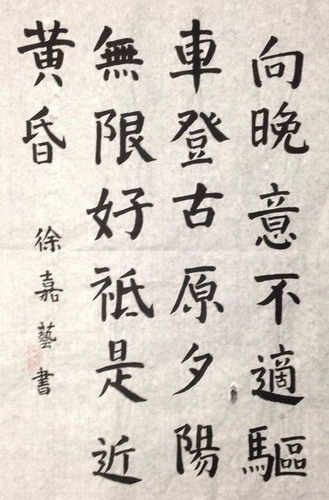 向晚意不適驅
車登古原夕陽
無限好祗是近
黃昏
徐嘉藝書